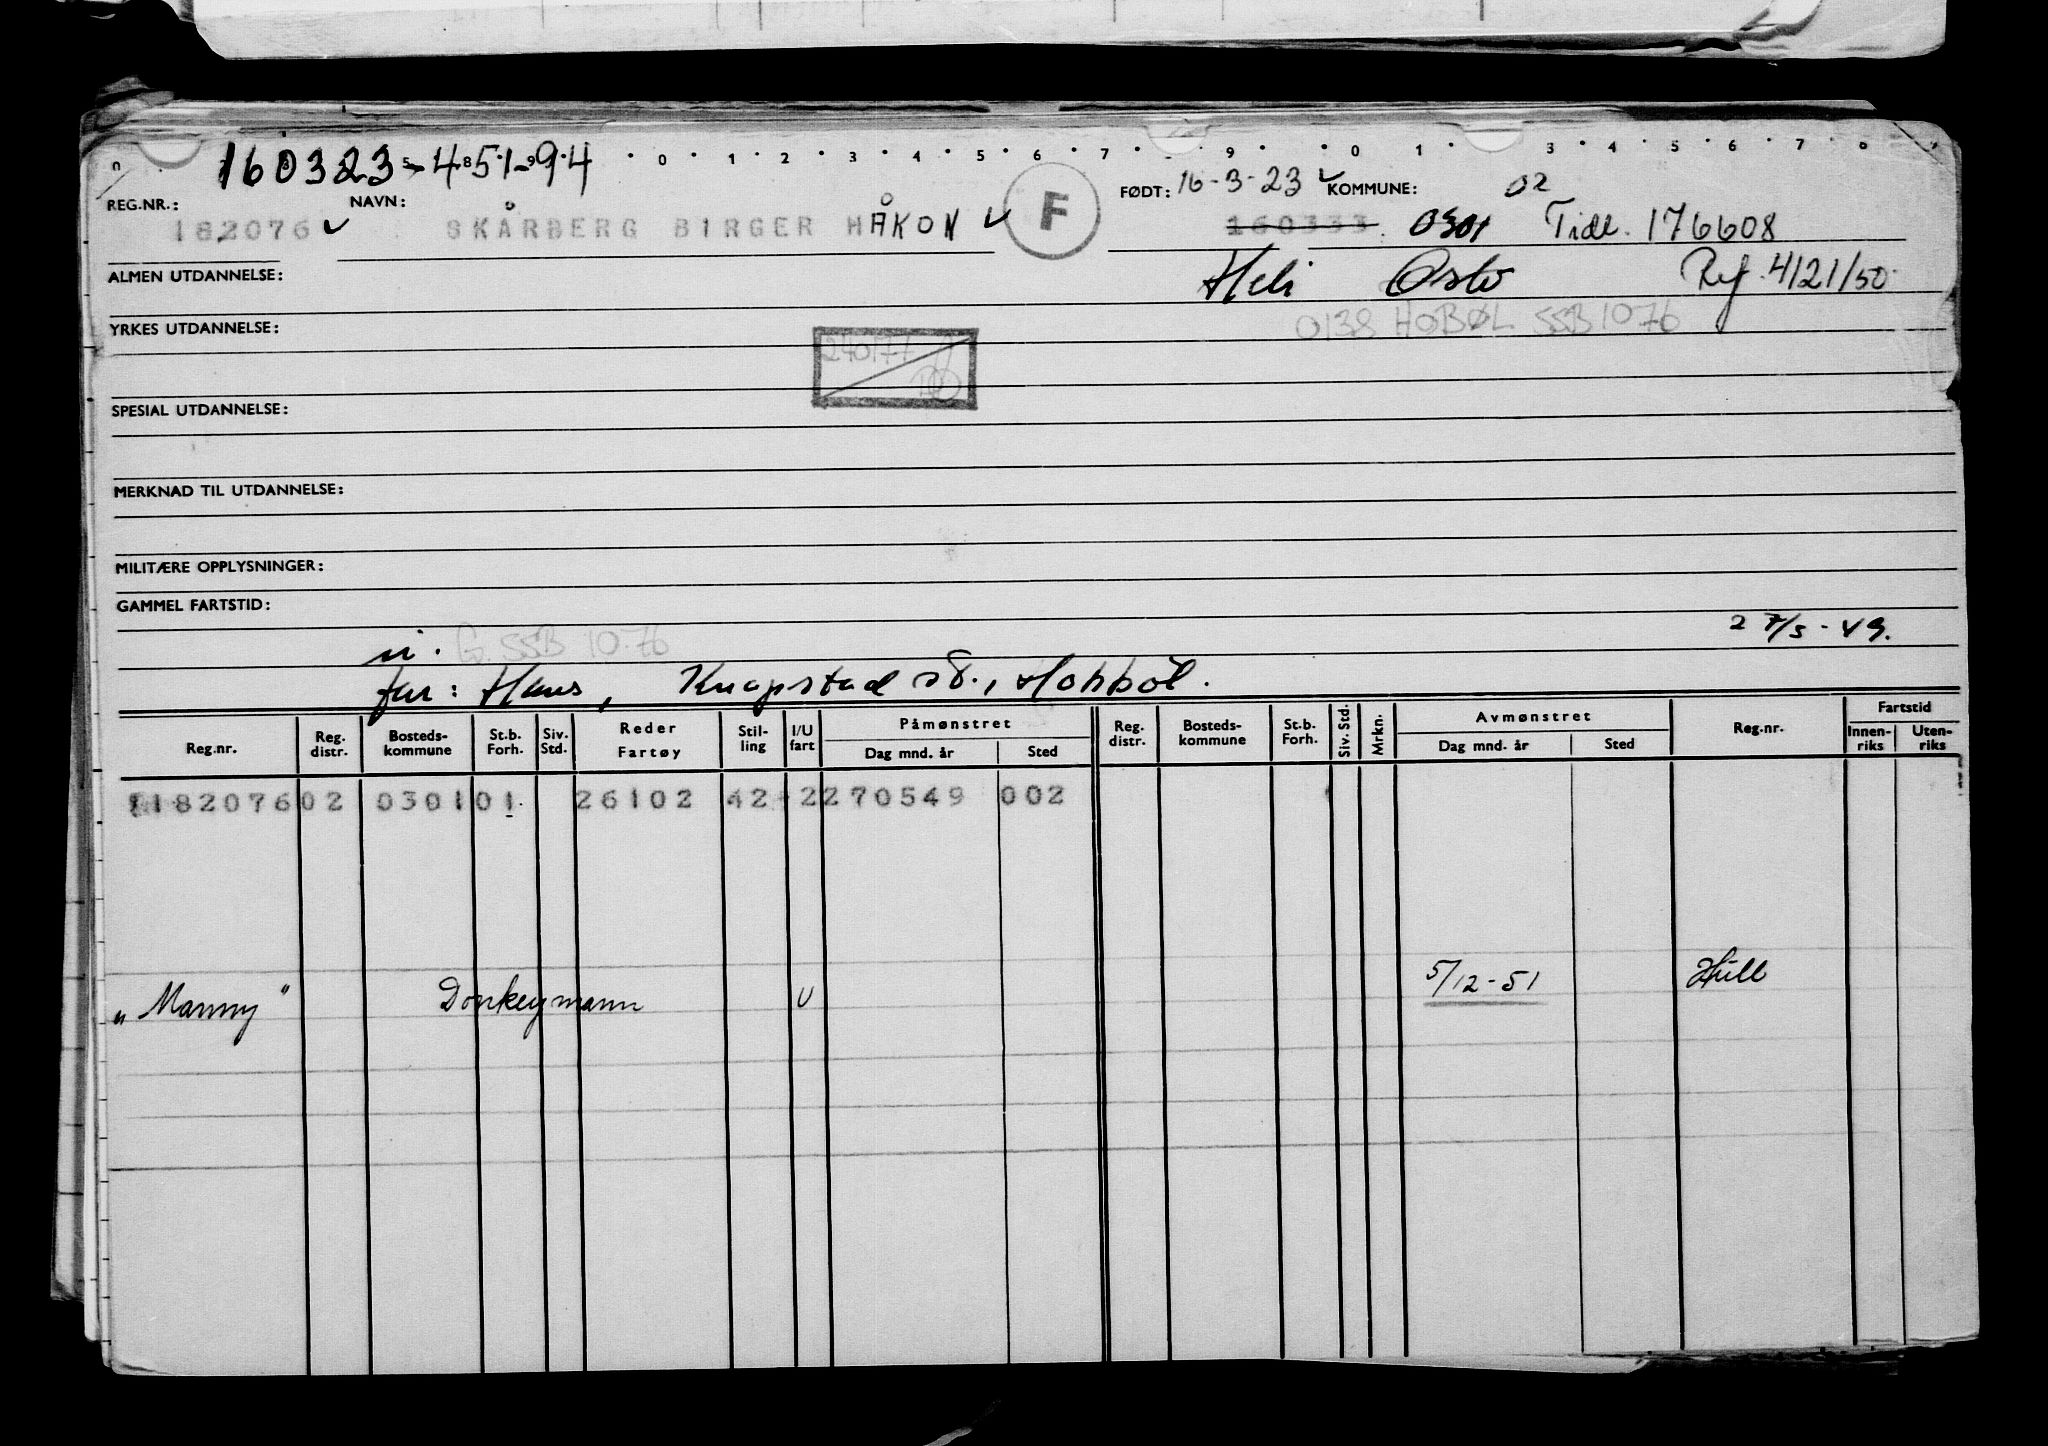 160323-45194
0 1 2 3 4 5 6 7 9 0 1 3 4 5 6 7 8
REG.NR.: NAVN: FØDT: 16-3-23 KOMMUNE: 02
182076 SKÅRBERG BIRGER HÅKON F 160333 0301 Tidl. 176608
ALMEN UTDANNELSE: Oslo Ref. 4121/50
YRKES UTDANNELSE: 0138 HOBØL SSB 1076
240177
SPESIAL UTDANNELSE:
MERKNAD TIL UTDANNELSE:
MILITÆRE OPPLYSNINGER:
GAMMEL FARTSTID:
27/5-49.
G. SSB 10.76
far: Hans, Knapstad st., Hobböl.
Reg.nr. Reg. distr. Bosteds- kommune St.b. Forh. Siv. Std. Reder Fartøy Stil- ling I/U fart Påmønstret Dag mnd. år Sted Reg. distr. Bosteds- kommune St.b. Forh. Siv. Std. Mrkn. Avmønstret Dag mnd. år Sted Reg.nr. Fartstid Innen- riks Uten- riks
18207602 030101 26102 42 2270549 002
"Manny" Donkeymann U 5/12-51 Hull